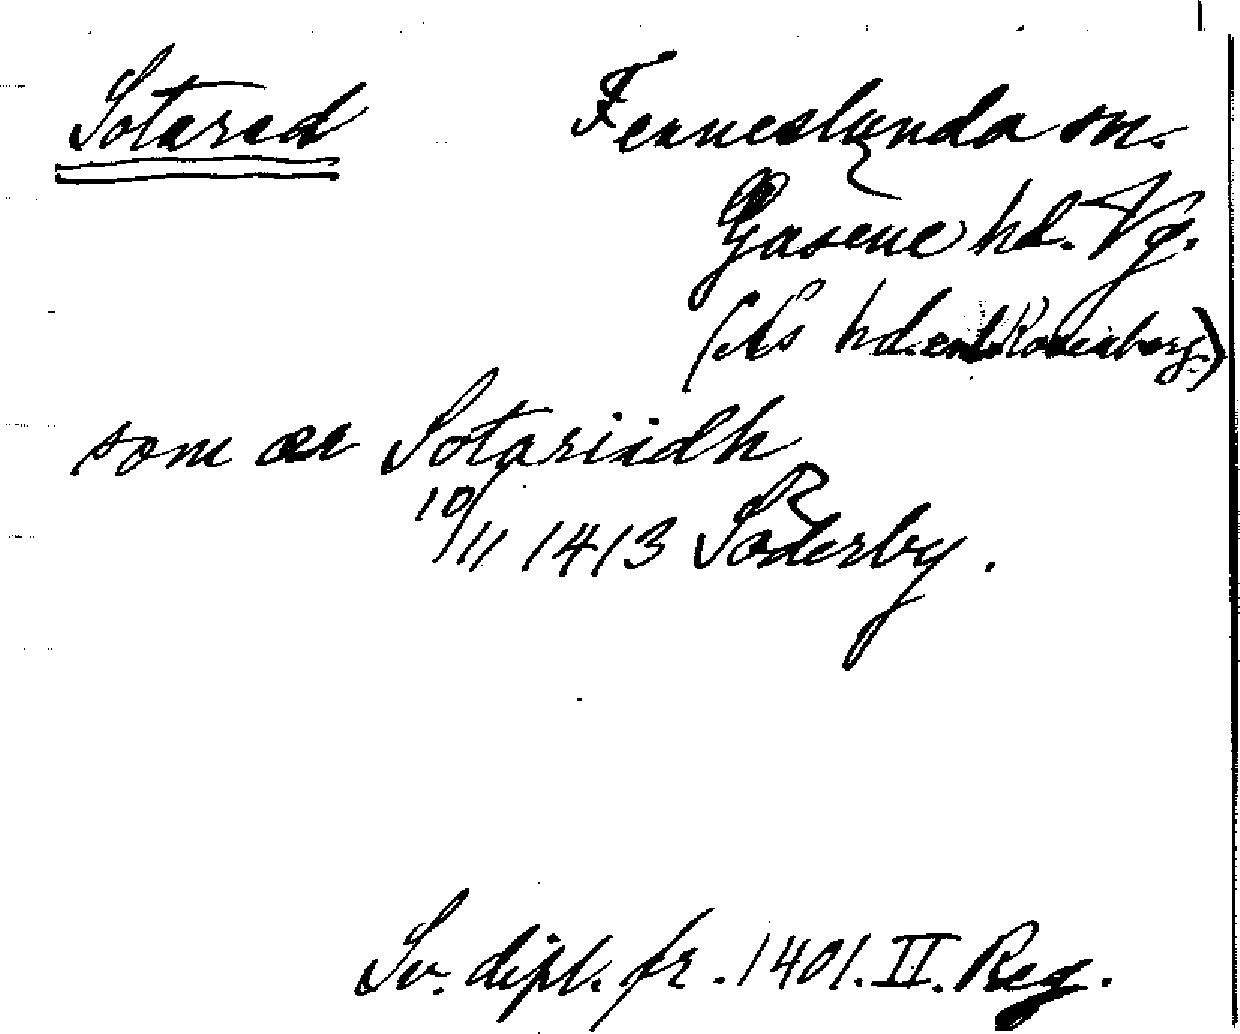 Sotared Fenneslunda sn.
Gäsene hd. Vg.
(Ås hd. enl. Rosenberg.)
som ær Sotariidh
10/11 1413 Söderby.
Sv. dipl. fr. 1401. II. Reg.